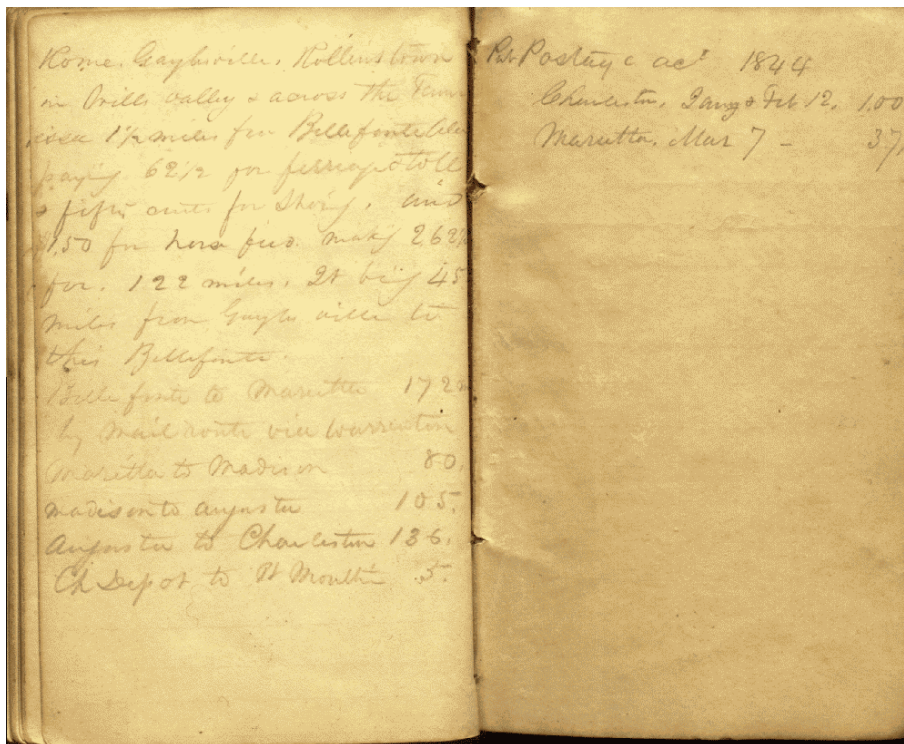 Rome, Gaylesville, Rollinstown
in Wills valley & across the Tenn
essee 1 1/2 miles for Bellefonte Ala
paying 62 1/2 for ferriage & toll
& fifty cents for Shoing. and
$1.50 for horse feed. making 2,62 1/2
for. 122 miles. It being 45
miles from Gayles ville to
this Bellefonte.
Bellefonte to Marietta 172 m
by mail route via Warrenton
Marietta to Madison 80.
Madison to Augusta 105.
Augusta to Charleston 136.
Ch Depot to Ft Moultrie .5.
Postage act 1844
Charleston, Jany & Feb 12. 1.00
Marietta. Mar 7 - 37